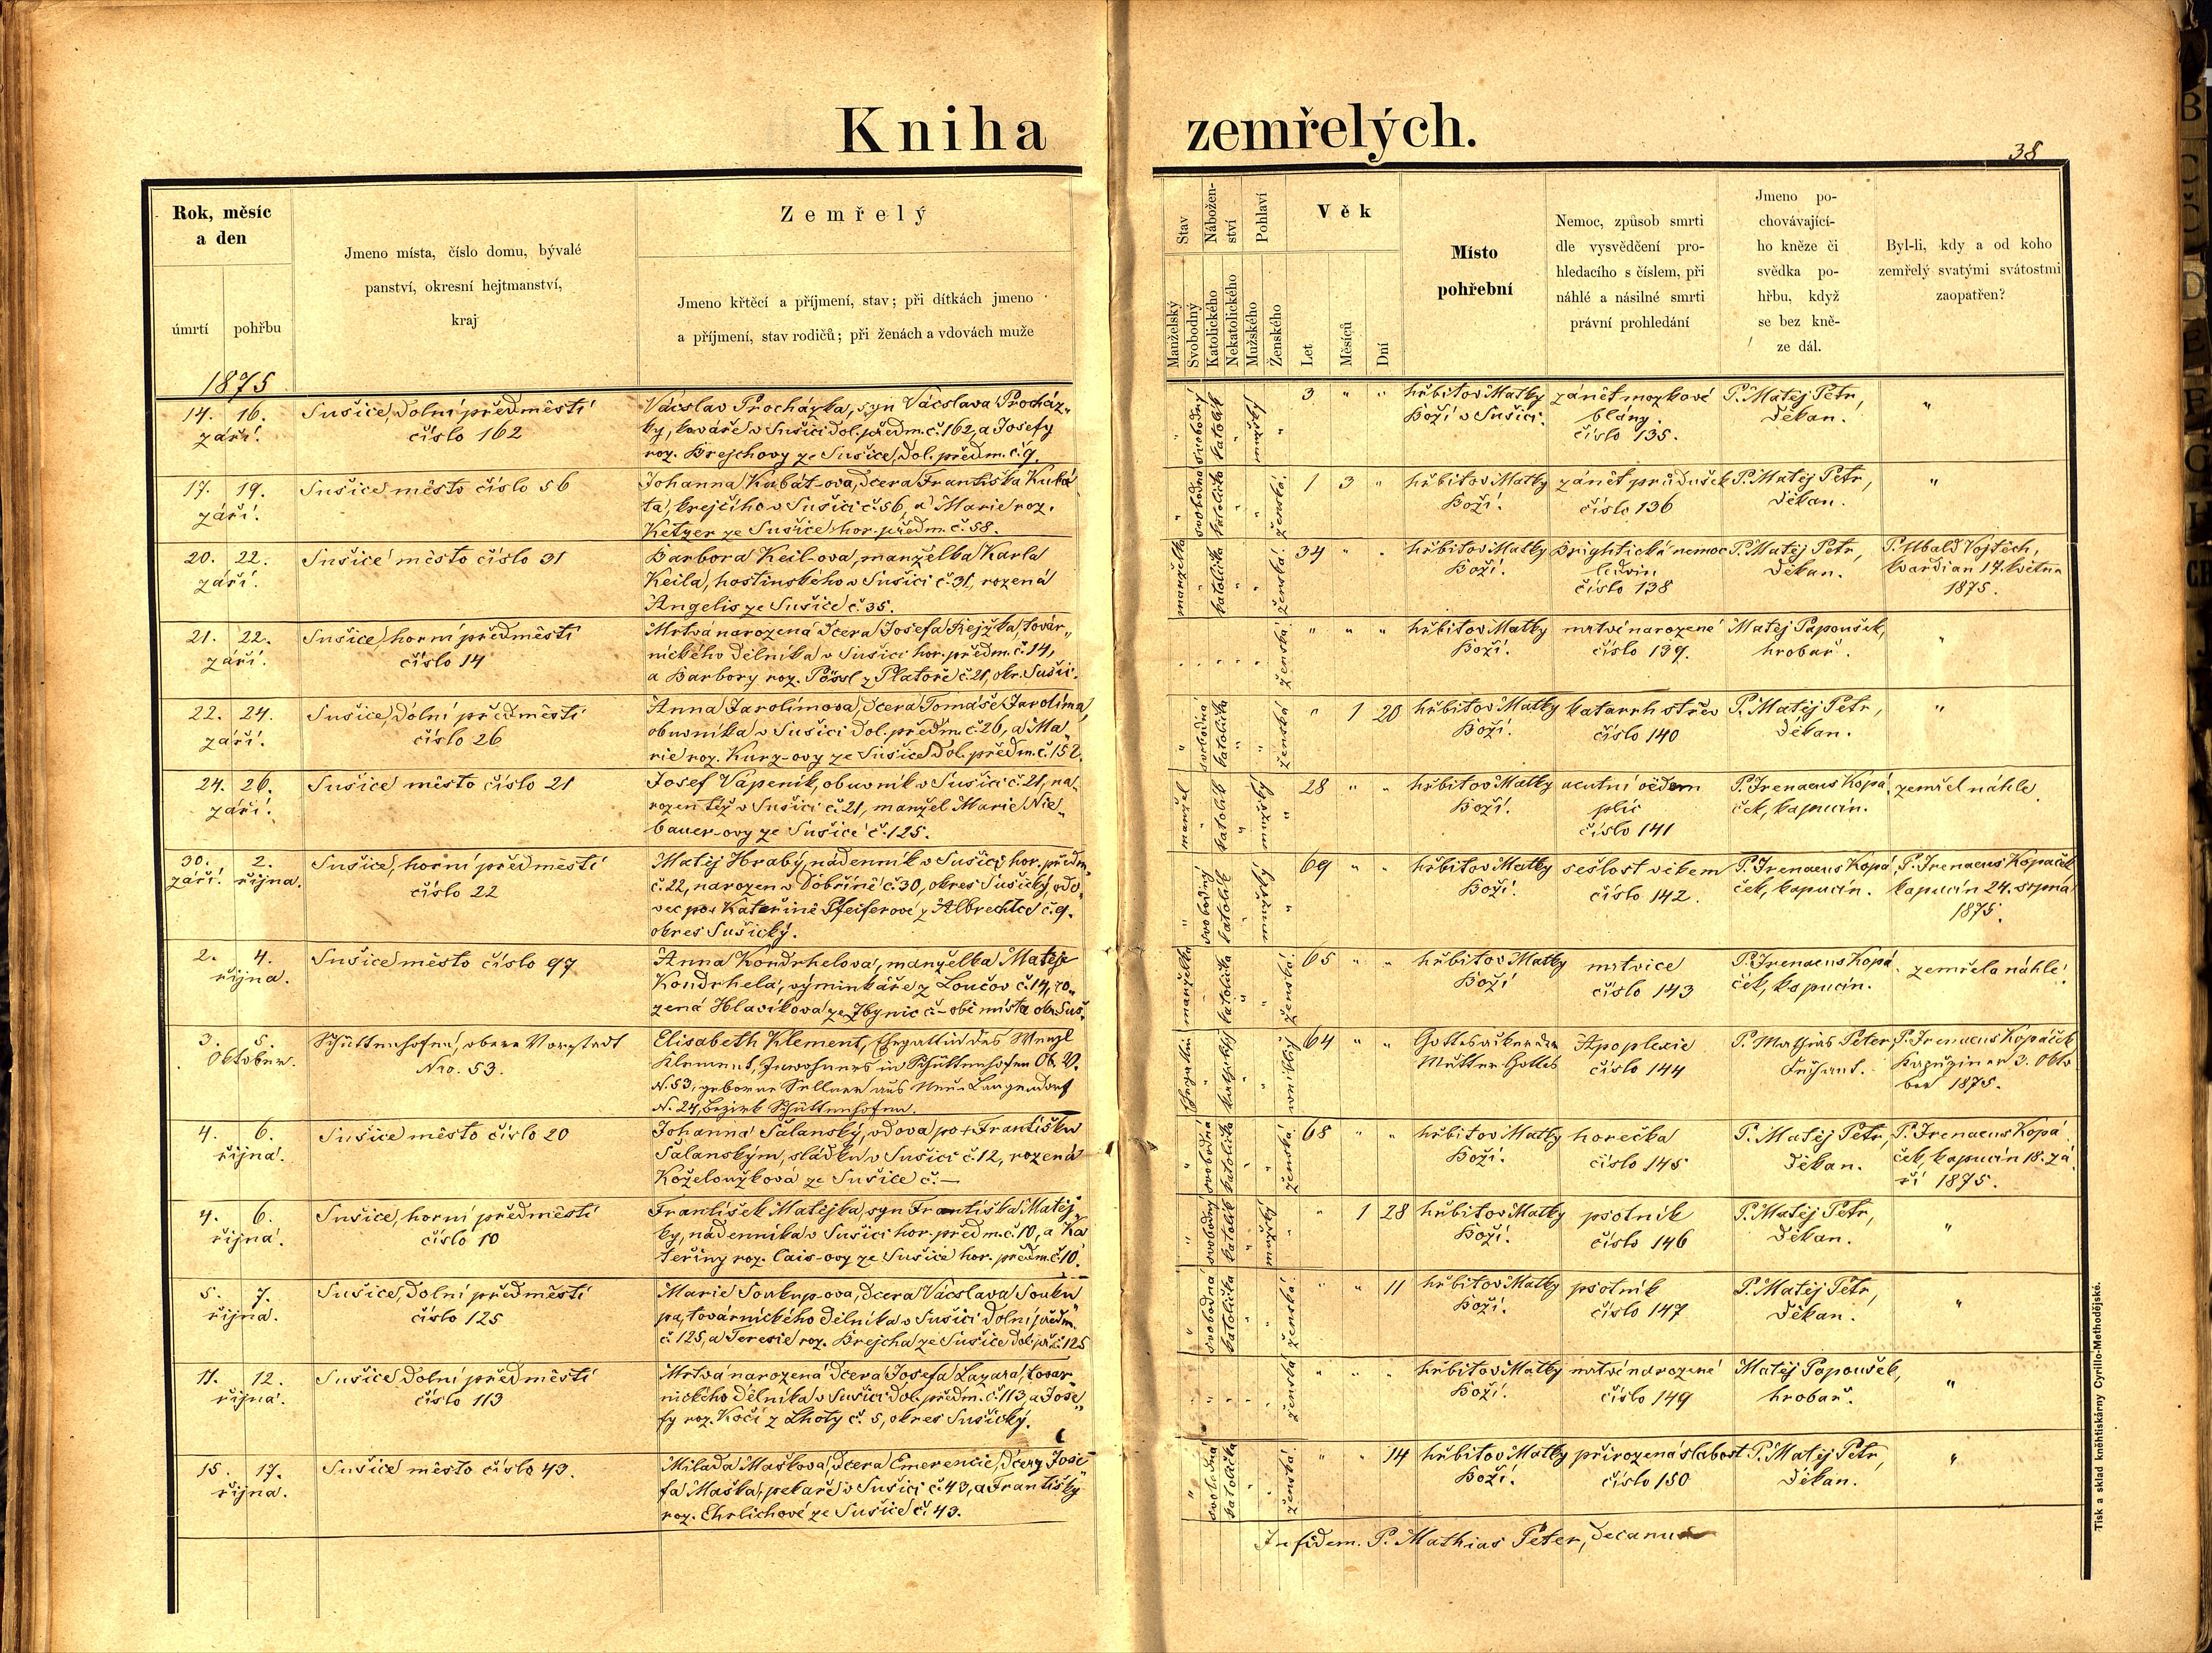 Kniha zemřelých.
38
Rok, měsíc
a den
úmrtí
pohřbu
Jmeno místa, číslo domu, bývalé
panství, okresní hejtmanství,
kraj
Zemřelý
Jmeno křtěcí a příjmení, stav; při dítkách jmeno
a příjmení, stav rodičů; při ženách a vdovách muže
Stav
Nábožen-
ství
Pohlaví
Věk
Manželský
Svobodný
Katolického
Nekatolického
Mužského
Ženského
Let
Měsíců
Dní
Místo
pohřební
Nemoc, způsob smrti
dle vysvědčení pro-
hledacího s číslem, při
náhlé a násilné smrti
právní prohledání
Jmeno po-
chovávající-
ho kněze či
svědka po-
hřbu, když
se bez kně-
ze dál.
Byl-li, kdy a od koho
zemřelý svatými svátostmi
zaopatřen?
1875
14. 16.
září.
Sušice, dolní předměstí
číslo 162
Vácslav Procházka, syn Vácslava Procház„
ky, kováře v Sušici dol. předm. č. 162, a Josefy
roz. Brejchovy ze Sušice, dol. předm. č. 9.
" svobodný katolík " mužský "
3 " "
hřbitov Matky
Boží v Sušici.
zánět mozkové
blány
číslo 135.
P. Matěj Petr,
Děkan.
"
17. 19.
září.
Sušice město číslo 56
Johanna Kabát-ova, dcera Františka Kabá„
ta, krejčího v Sušici č. 56, a Marie roz.
Ketzer ze Sušice, hor. předm. č. 58.
" svobodna katolička " " ženská.
1 3 "
hřbitov Matky
Boží.
zánět průdušek
číslo 136
P. Matěj Petr,
Děkan.
"
20. 22.
září.
Sušice město číslo 31
Barbora Keil-ova, manželka Karla
Keila, hostinského v Sušici č. 31, rozená
Angelis ze Sušice č. 35.
manželka " katolička " " ženská.
34 " "
hřbitov Matky
Boží.
Brightická nemoc
ledvin
číslo 138
P. Matěj Petr,
Děkan.
P. Ubald Vojtěch,
kvardian 17. května
1875.
21. 22.
září.
Sušice, horní předměstí
číslo 14
Mrtvá narozená dcera Josefa Rejžka, továr„
nického dělníka v Sušici hor. předm. č. 14,
a Barbory roz. Pössl z Platoře č. 21, okr. Sušic.
" " " " " ženská.
" " "
hřbitov Matky
Boží.
mrtvě narozené
číslo 139.
Matěj Papoušek,
hrobař.
"
22. 24.
září.
Sušice, dolní předměstí
číslo 26
Anna Jarolímova, dcera Tomáše Jarolíma,
obuvníka v Sušici dol. předm. č. 26, a Ma„
rie roz. Kurz-ovy ze Sušice dol. předm. č. 152.
" svobodná katolička " " ženská
" 1 20
hřbitov Matky
Boží.
katarrh střev
číslo 140
P. Matěj Petr,
Děkan.
"
24. 26.
září.
Sušice město číslo 21
Josef Vápeník, obuvník v Sušici č. 21, na„
rozen též v Sušici č. 21, manžel Marie Nie„
bauer-ovy ze Sušice č. 125.
manžel " katolík " mužský "
28 " "
hřbitov Matky
Boží.
acutní oedem
plic
číslo 141
P. Irenaeus Kopá„
ček, kapucín.
zemřel náhle.
30. 2.
září. října.
Sušice, horní předměstí
číslo 22
Matěj Hrabý, nádenník v Sušici, hor. předm.
č. 22, narozen v Dobříně č. 30, okres Sušický, vdo„
vec po + Kateřině Pfeiferové z Albrechtic č. 9.
okres Sušický.
" svobodný katolík " mužský "
69 " "
hřbitov Matky
Boží.
sešlost věkem
číslo 142.
P. Irenaeus Kopá„
ček, kapucín.
P. Irenaeus Kopáček
kapucín 24. srpna
1875.
2. 4.
října.
Sušice město číslo 97
Anna Kondrhelova, manželka Matěje
Kondrhela, výminkáře z Loučov č. 14, ro„
zená Hlavíkova ze Zbynic č. – obě místa okr. Suš.
manželka " katolička " " ženská.
65 " "
hřbitov Matky
Boží
mrtvice
číslo 143
P. Irenaeus Kopá„
ček, kapucín.
zemřela náhle.
3. 5.
Oktober.
Schüttenhofen, obere Vorstadt
Nro. 53.
Elisabeth Klement, Ehegattin des Wenzl
Klement, Inwohners in Schüttenhofen Ob. V.
N. 53, geborne Sellner aus Neu-Langendorf
N. 24, Bezirk Schüttenhofen.
Ehegattin " katholisch " " weiblich
64 " "
Gottesacker der
Mutter Gottes
Apoplexie
číslo 144
P. Mathias Peter,
Dechant.
P. Irenaeus Kopáček
Kapuziner 3. Okto
ber 1875.
4. 6.
října.
Sušice město číslo 20
Johanna Šalanský, vdova po + Františku
Šalanským, sládku v Sušici č. 12, rozená
Koželoužková ze Sušice č. –
" svobodná katolička " " ženská.
68 " "
hřbitov Matky
Boží.
horečka
číslo 145
P. Matěj Petr,
Děkan.
P. Irenaeus Kopá„
ček, kapucín 18. zá„
ří 1875.
4. 6.
října.
Sušice, horní předměstí
číslo 10
František Matějka, syn Františka Matěj„
ky, nádenníka v Sušici hor. předm. č. 10, a Ka„
teřiny roz. Cais-ovy ze Sušice hor. předm. č. 10.
" svobodný katolík " mužský "
" 1 28
hřbitov Matky
Boží.
psotník
číslo 146
P. Matěj Petr,
Děkan.
"
5. 7.
října.
Sušice, dolní předměstí
číslo 125
Marie Soukup-ova, dcera Vácslava Souku„
pa, továrnického dělníka v Sušici dolní předm.
č. 125, a Teresie roz. Brejcha ze Sušice dol. př. č. 125
" svobodná katolička " " ženská.
" " 11
hřbitov Matky
Boží.
psotník
číslo 147
P. Matěj Petr,
Děkan.
"
11. 12.
října.
Sušice dolní předměstí
číslo 113
Mrtvá narozená dcera Josefa Lazara, tovar„
nického dělníka v Sušici dol. předm. č. 113, a Jose„
fy roz. Kočí z Lhoty č. 5, okres Sušický.
" " " " " ženská
" " "
hřbitov Matky
Boží.
mrtvě narozené
číslo 149
Matěj Papoušek,
hrobař.
"
15. 17.
října.
Sušice město číslo 43.
Milada Maškova, dcera Emerencie, dcery Jose„
fa Maška, pekaře v Sušici č. 43, a Františky
roz. Ehrlichové ze Sušice č. 43.
" svobodná katolička " " ženská.
" " 14
hřbitov Matky
Boží.
přirozená slabost
číslo 150
P. Matěj Petr,
Děkan.
"
In fidem. P. Mathias Peter, Decanus
Tisk a sklad kněhtiskárny Cyrillo-Methodějské.